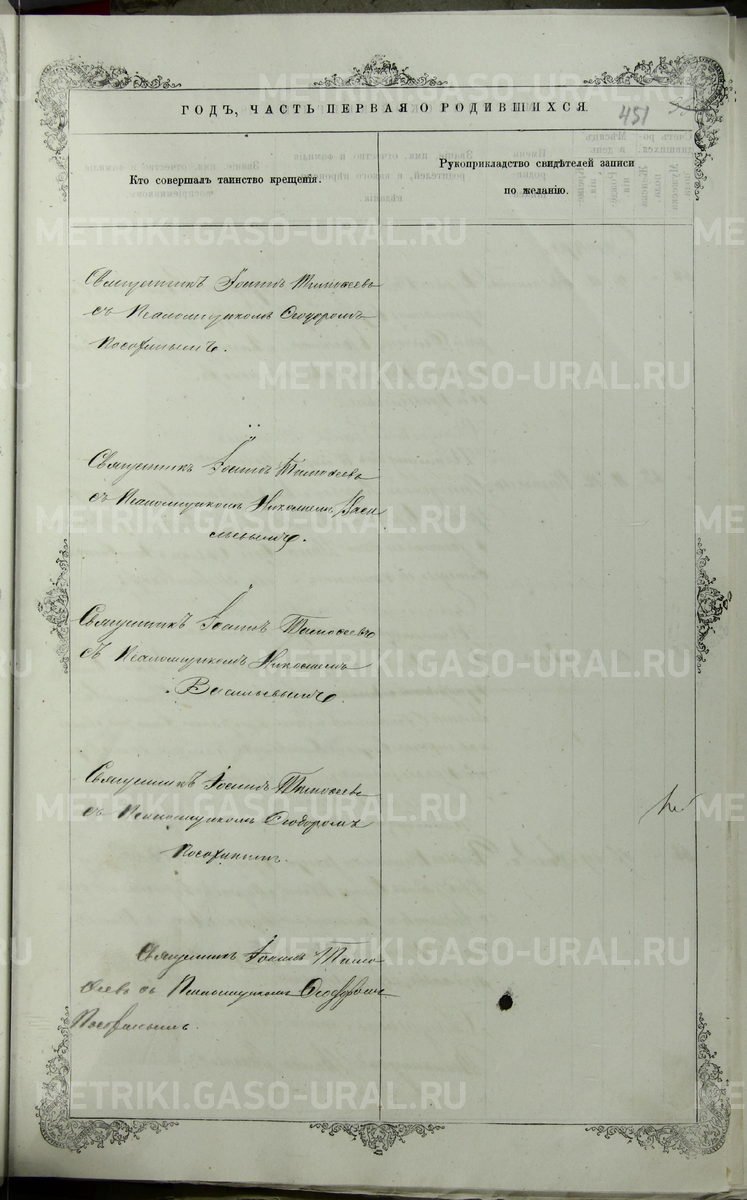 ГОДЪ, ЧАСТЬ ПЕРВАЯ О РОДИВШИХСЯ.
451
Кто совершалъ таинство крещенія.
Рукоприкладство свидѣтелей записи
по желанію.
Священникъ Іоаннъ Тимоѳеевъ
съ Псаломщикомъ Ѳеодоромъ
Священникъ Іоаннъ Тимоѳеевъ
съ Псаломщикомъ Николаемъ Васи
льевымъ.
Священникъ Іоаннъ Тимоѳеевъ
съ Псаломщикомъ Николаемъ
Васильевымъ.
Священникъ Іоаннъ Тимоѳеевъ
съ Псаломщикомъ Ѳеодоромъ
Священникъ Іоаннъ Тимо
ѳеевъ съ Псаломщикомъ Ѳеодоромъ
METRIKI.GASO-URAL.RU